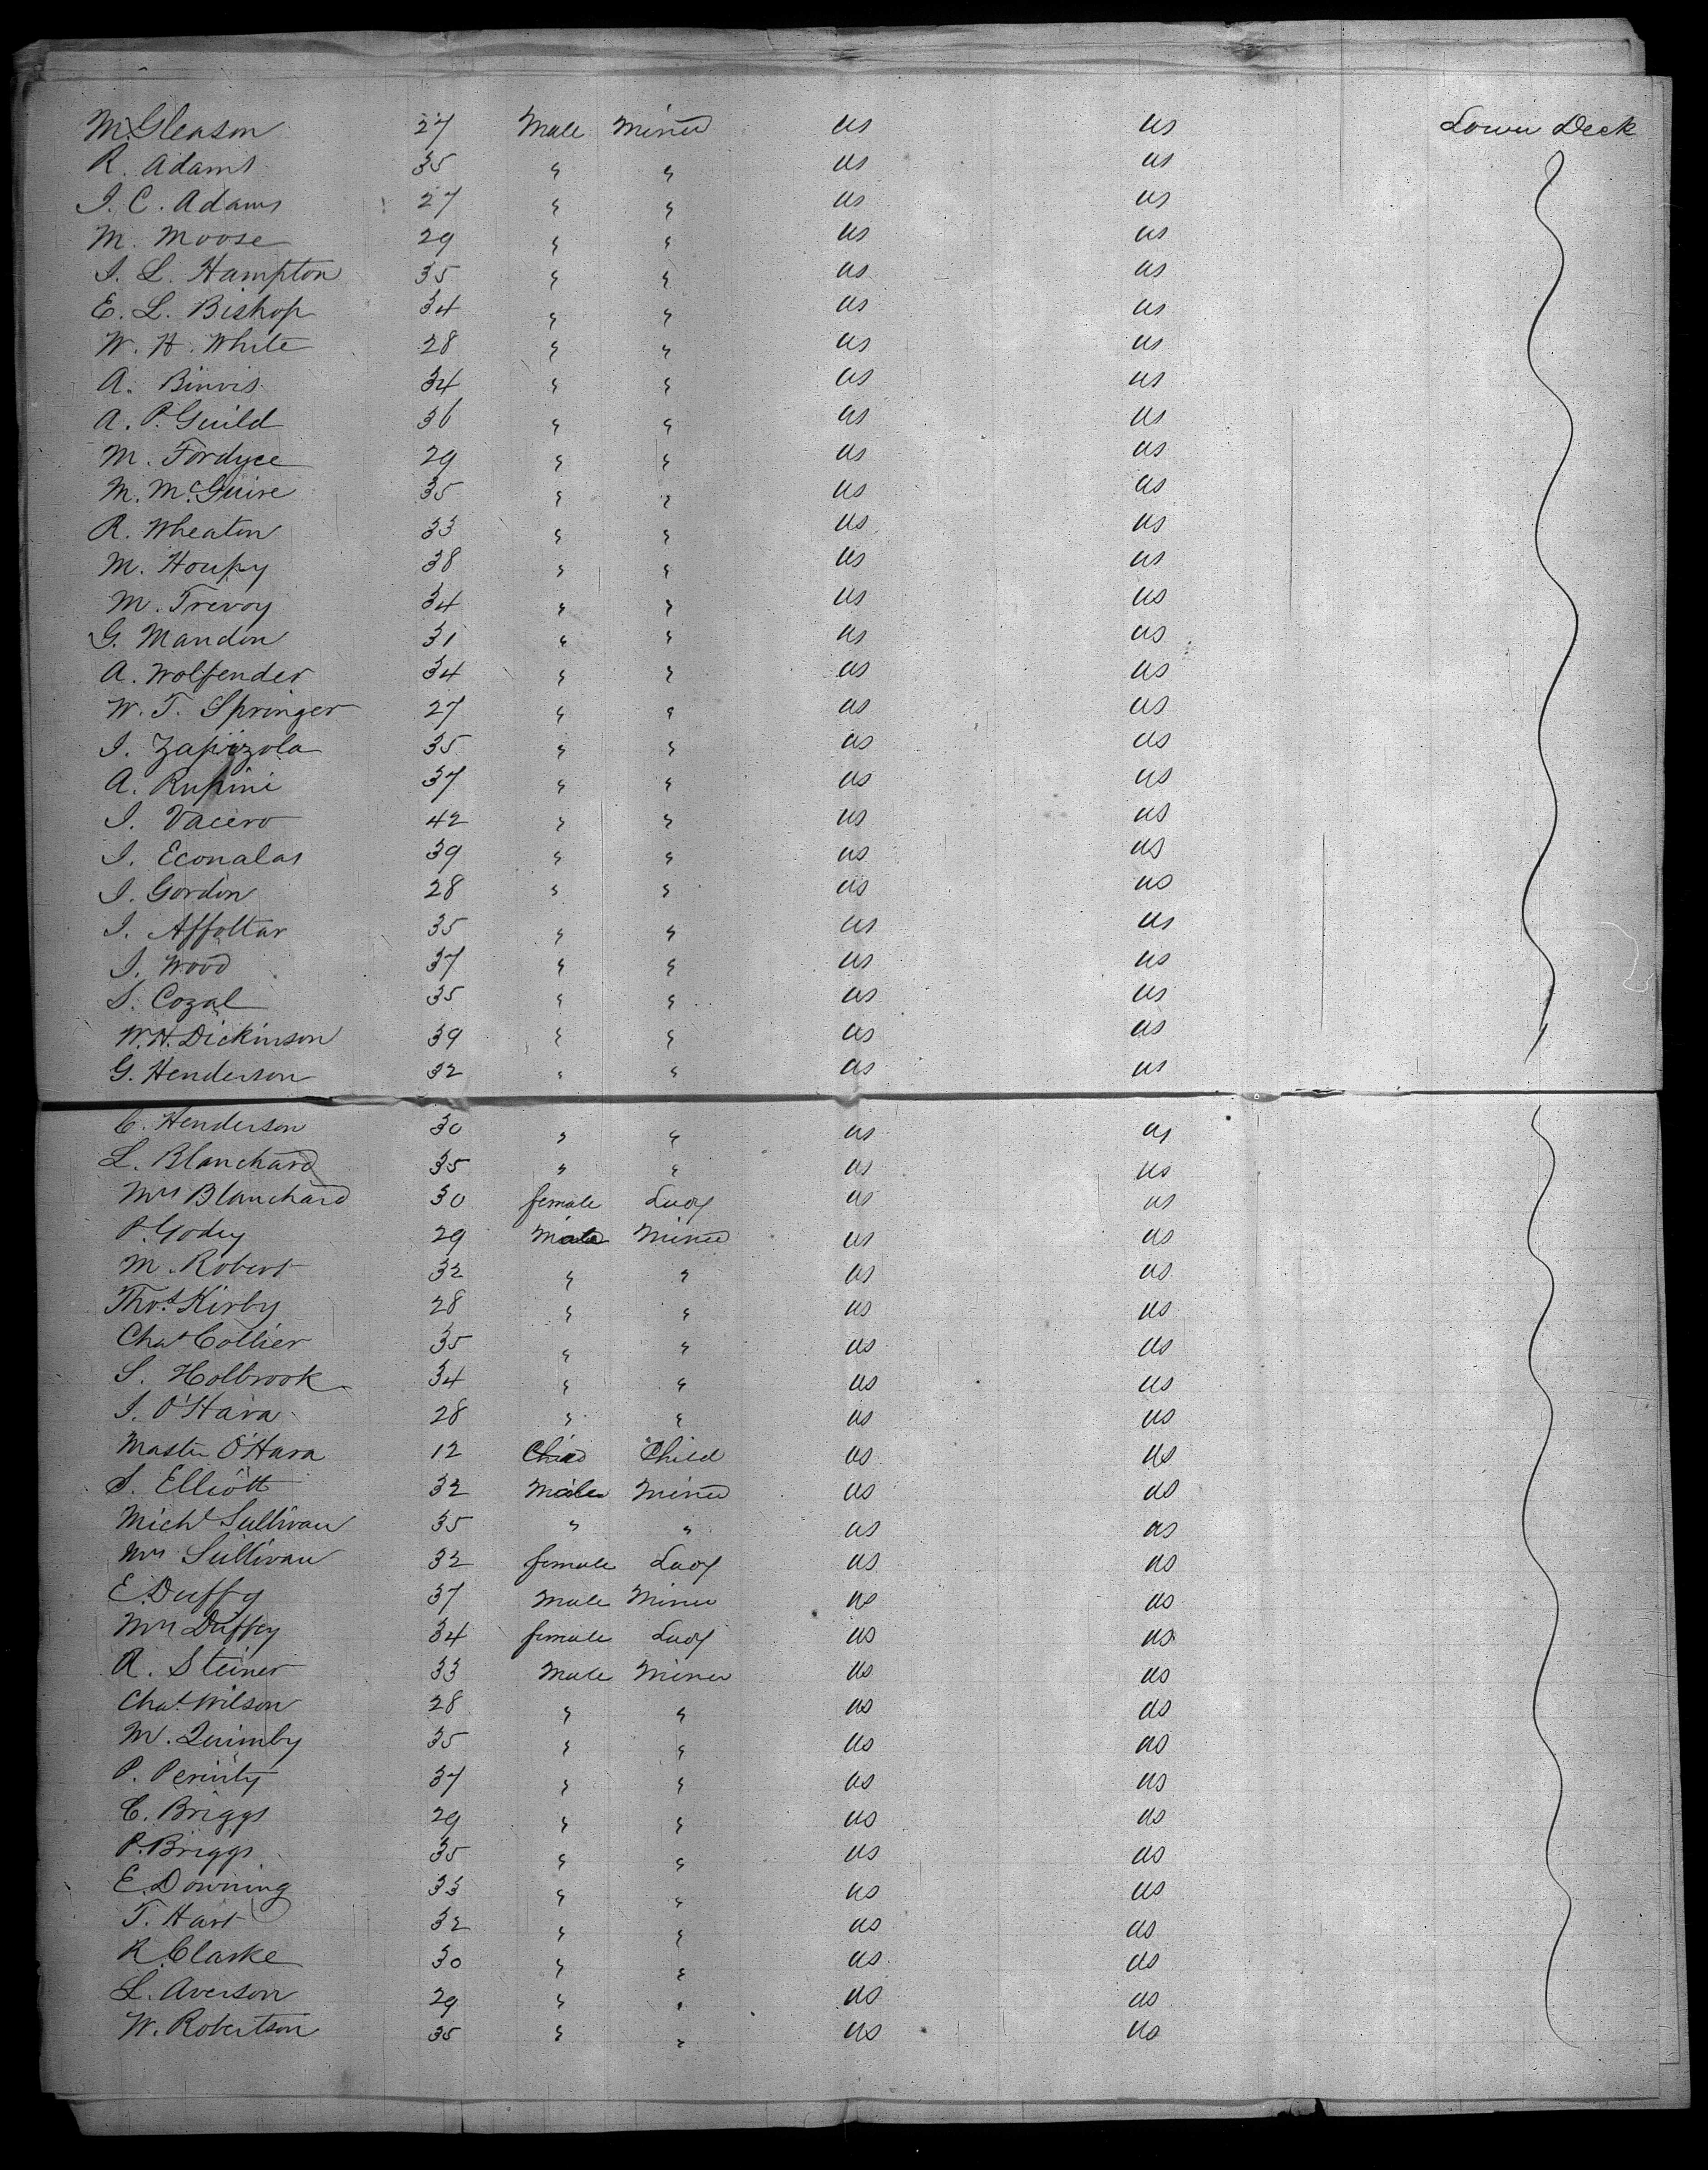 M. Gleason 27 Male Miner US US Lower Deck
R. Adams 35 " " US US
I. C. Adams 27 " " US US
M. Moose 29 " " US US
I. L. Hampton 35 " " US US
E. L. Bishop 34 " " US US
W. H. White 28 " " US US
A. Binvis 34 " " US US
A. P. Guild 36 " " US US
M. Fordyce 29 " " US US
M. McGuire 35 " " US US
R. Wheaton 33 " " US US
M. Houpy 38 " " US US
M. Trevoy 34 " " US US
G. Mandon 31 " " US US
A. Wolfender 34 " " US US
W. T. Springer 27 " " US US
I. Zapizola 35 " " US US
A. Rupini 37 " " US US
I. Vacero 42 " " US US
I. Econalas 39 " " US US
I. Gordon 28 " " US US
I. Affoltar 35 " " US US
I. Wood 37 " " US US
S. Cozal 35 " " US US
W. H. Dickinson 39 " " US US
G. Henderson 32 " " US US
C. Henderson 30 " " US US
L. Blanchard 35 " " US US
Mrs Blanchard 30 female Lady US US
P. Godey 29 Male Miner US US
M. Robert 32 " " US US
Thos. Kirby 28 " " US US
Chas Collier 35 " " US US
S. Holbrook 34 " " US US
I. O'Hara 28 " " US US
Master O'Hara 12 Child Child US US
S. Elliott 32 Male Miner US US
Michl Sullivan 35 " " US US
Mrs Sullivan 32 female Lady US US
E. Duffy 37 Male Miner US US
Mrs Duffey 34 female Lady US US
R. Steiner 33 Male Miner US US
Chas. Wilson 28 " " US US
M. Quimby 35 " " US US
P. 37 " " US US
C. Briggs 29 " " US US
P. Briggs 35 " " US US
E. Downing 33 " " US US
T. Hart 32 " " US US
R. Clarke 30 " " US US
L. Averson 29 " " US US
W. Robertson 35 " " US US